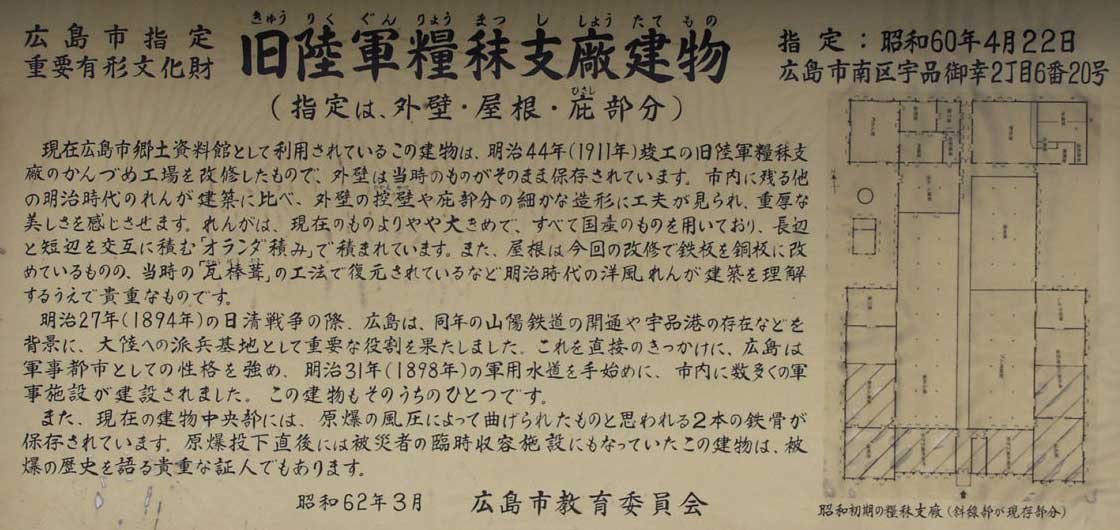 広島市指定
重要有形文化財
きゅう りく ぐん りょう まつ し しょう たて もの
旧陸軍糧秣支廠建物
指定：昭和60年4月22日
広島市南区宇品御幸2丁目6番20号
ひさし
（指定は、外壁・屋根・庇部分）
現在広島市郷土資料館として利用されているこの建物は、明治44年(1911年)竣工の旧陸軍糧秣支
廠のかんづめ工場を改修したもので、外壁は当時のものがそのまま保存されています。市内に残る他
の明治時代のれんが建築に比べ、外壁の控壁や庇部分の細かな造形に工夫が見られ、重厚な
美しさを感じさせます。れんがは、現在のものよりやや大きめで、すべて国産のものを用いており、長辺
と短辺を交互に積む「オランダ積み」で積まれています。また、屋根は今回の改修で鉄板を銅板に改
めているものの、当時の「瓦棒葺」の工法で復元されているなど明治時代の洋風れんが建築を理解
するうえで貴重なものです。
明治27年(1894年)の日清戦争の際、広島は、同年の山陽鉄道の開通や宇品港の存在などを
背景に、大陸への派兵基地として重要な役割を果たしました。これを直接のきっかけに、広島は
軍事都市としての性格を強め、明治31年(1898年)の軍用水道を手始めに、市内に数多くの軍
事施設が建設されました。この建物もそのうちのひとつです。
また、現在の建物中央部には、原爆の風圧によって曲げられたものと思われる2本の鉄骨が
保存されています。原爆投下直後には被災者の臨時収容施設にもなっていたこの建物は、被
爆の歴史を語る貴重な証人でもあります。
昭和62年3月 広島市教育委員会
昭和初期の糧秣支廠（斜線部が現存部分）